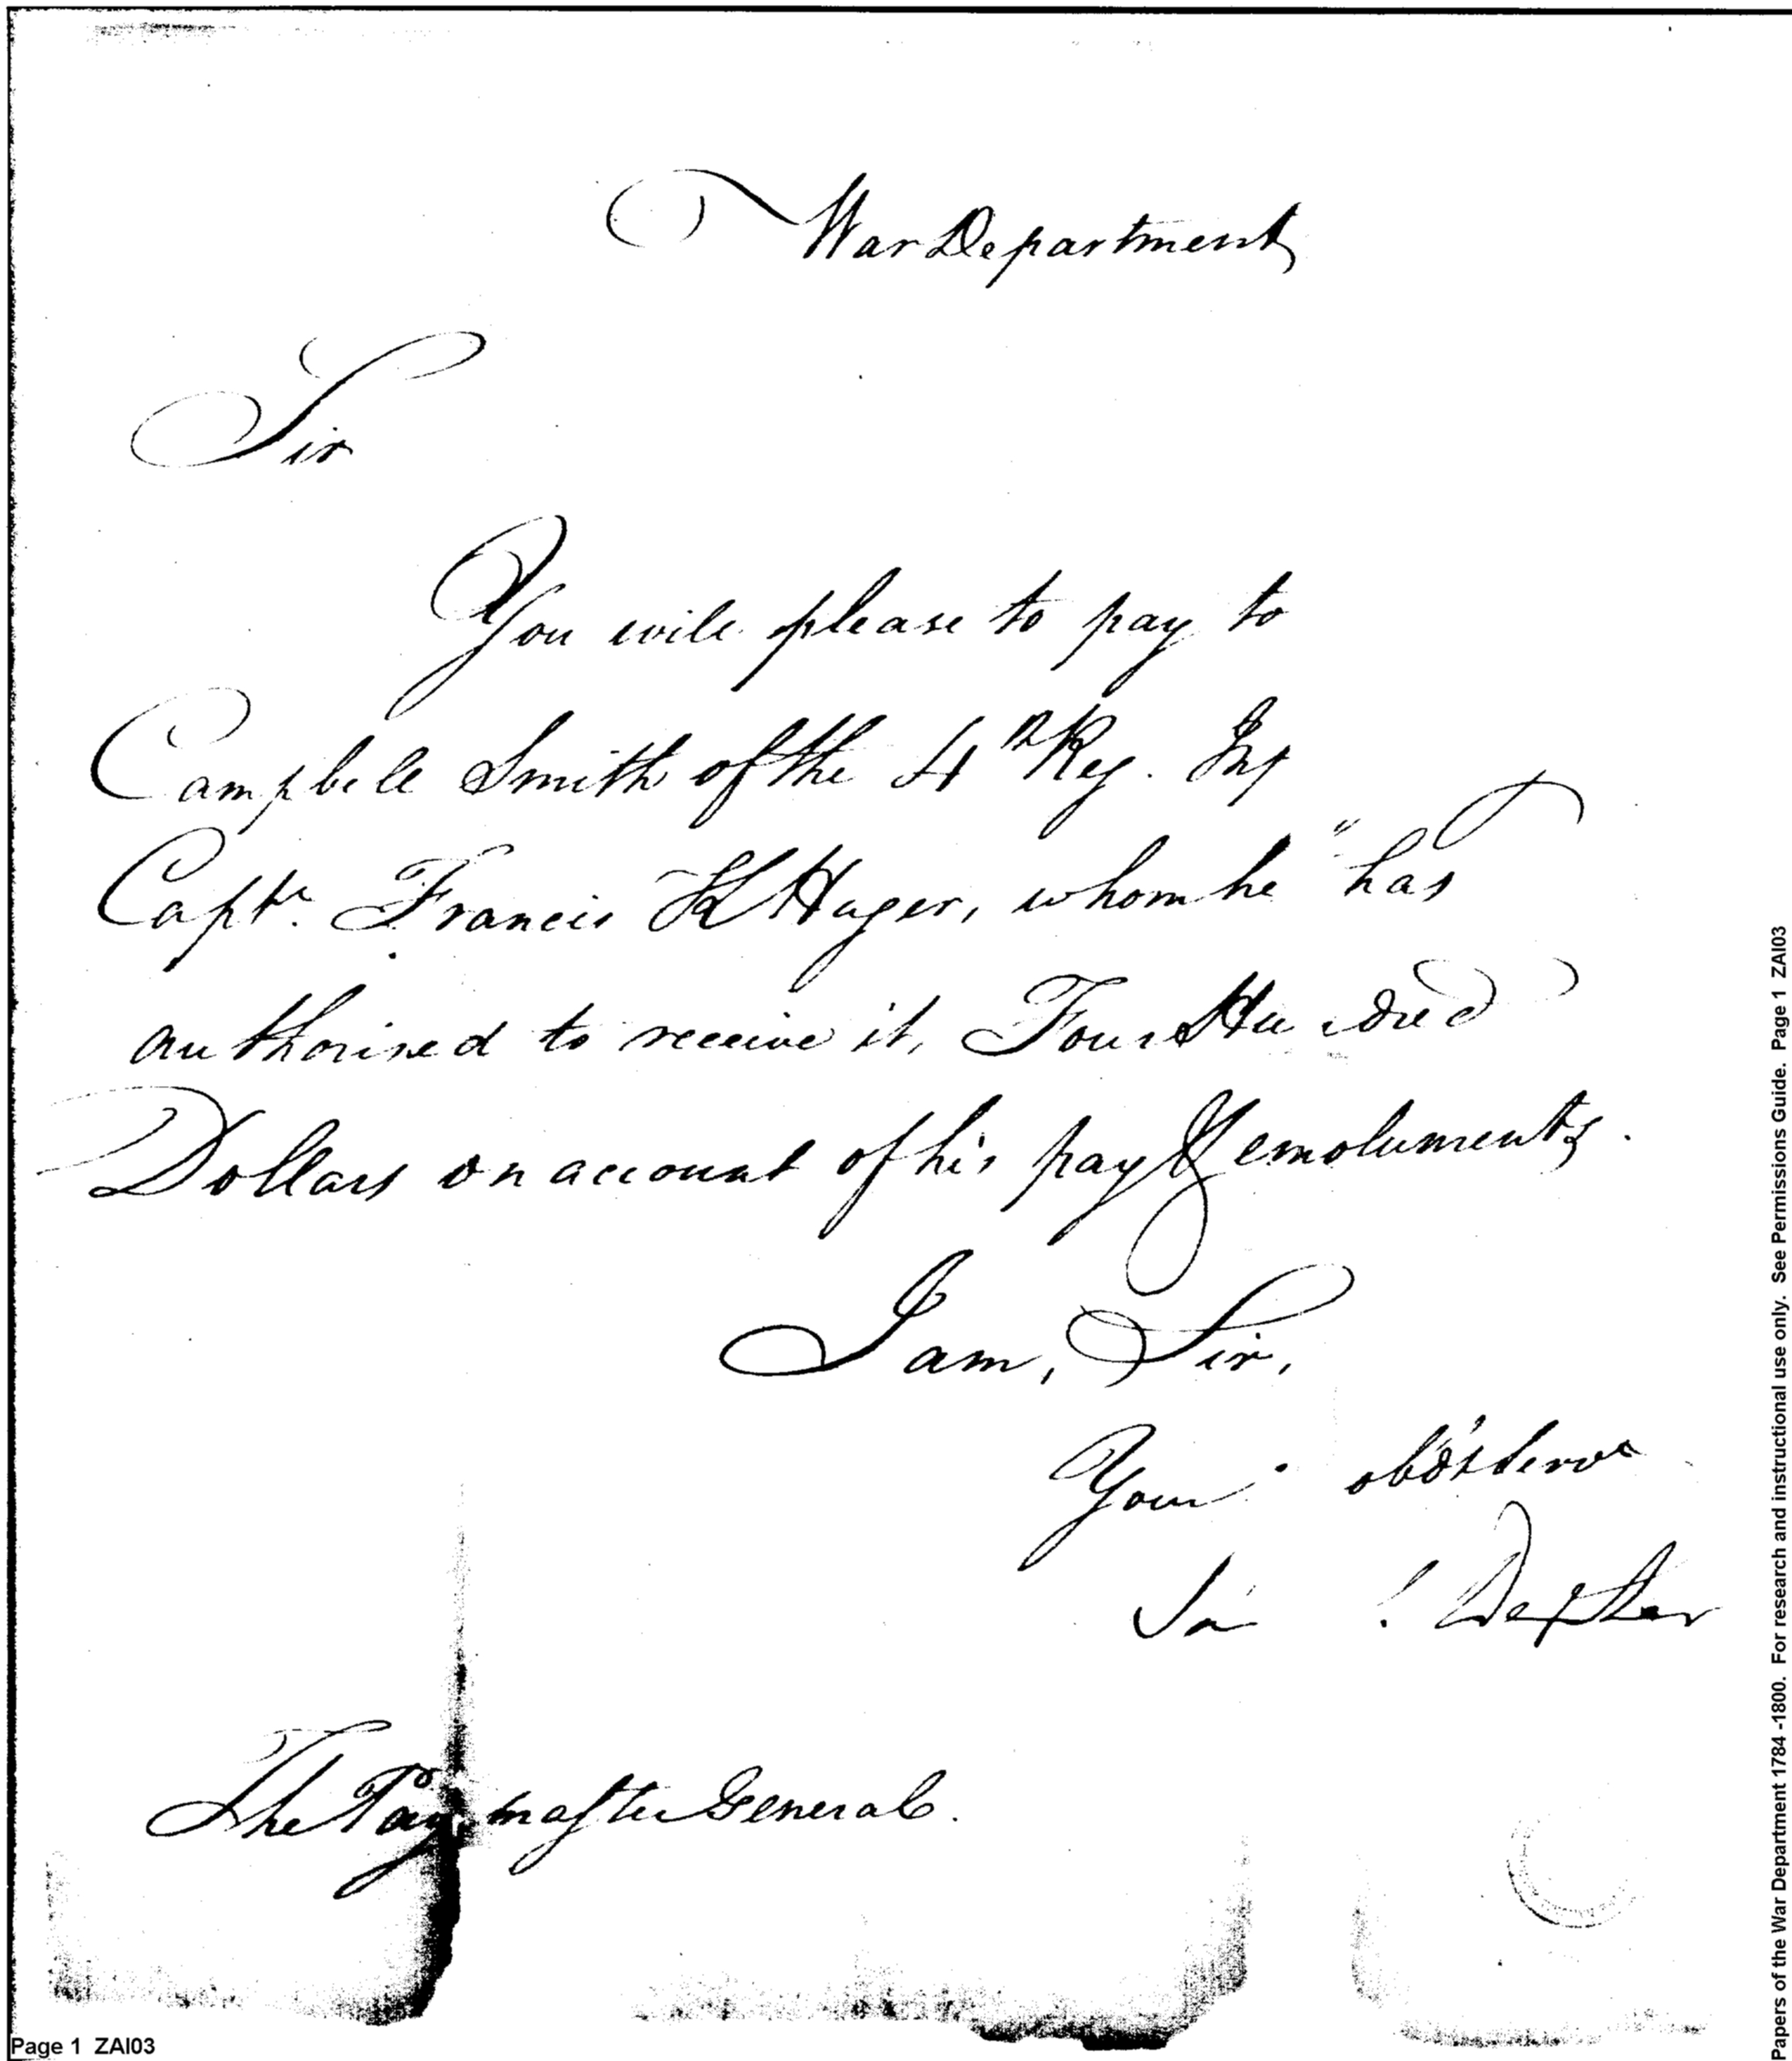 War Department
Sir
You will please to pay to
Campbell Smith of the 4th Reg. Inf
Captn. Francis K Huger, whom he "has
authorised to receive it, Four Hundred
Dollars on account of his pay & emoluments.
I am, Sir,
Your obdt serv
Dexter
The Paymaster General.
Page 1 ZAI03
Papers of the War Department 1784-1800. For research and instructional use only. See Permissions Guide. Page 1 ZAI03